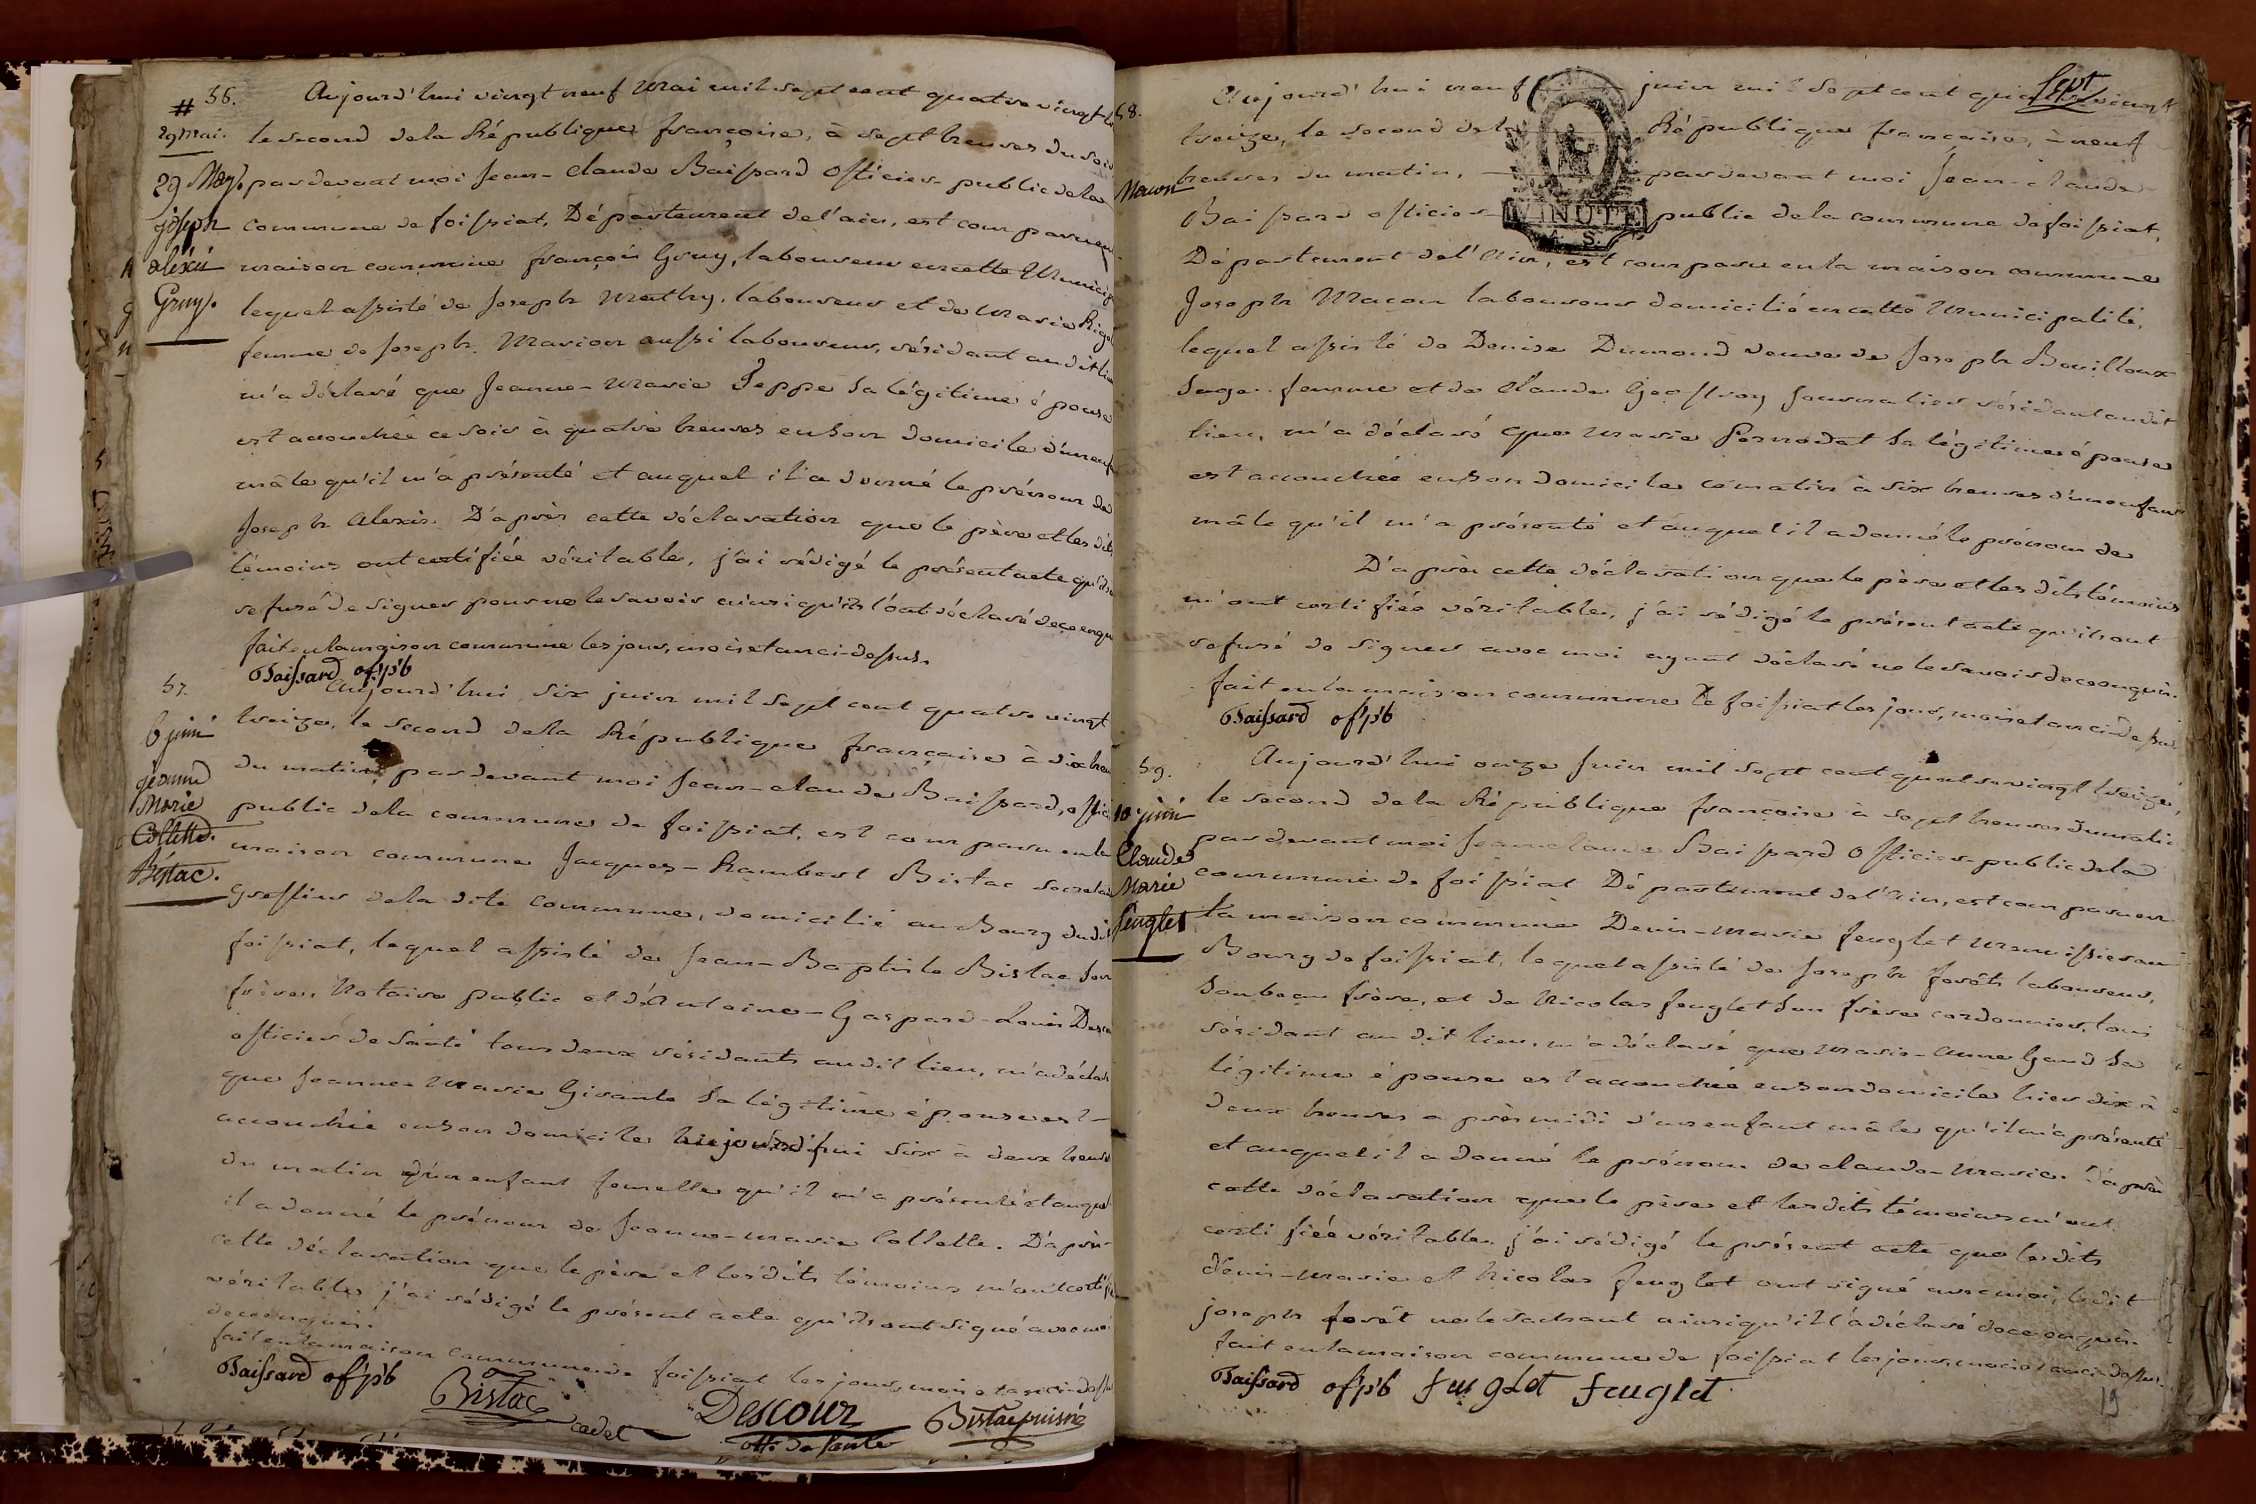 # 56.
29 mai.
29 May.
joseph
aléxis
Gruy.
Aujourd'hui vingt neuf mai mil sept cent quatre vingt
le second de la République françoise, à sept heures du soir
pardevant moi Jean-Claude Baissard officier public de la
commune de foissiat, Département de l'ain, est comparu en
maison commune françois Gruy, laboureur en cette Munici
lequel assisté de Joseph Mathy, laboureur et de Marie
femme de Joseph Marion aussi laboureur, résidant audit lieu
m'a déclaré que Jeanne-Marie Peppe sa légitime épouse
est accouchée ce soir à quatre heures en son domicile d'un enf
mâle qu'il m'a présenté et auquel il a donné le prénom de
Joseph Alexis. D'après cette déclaration que le père et les dits
témoins ont certifiée véritable, j'ai rédigé le présent acte qu'ils
refusé de signer pour ne le savoir ainsi qu'ils l'ont déclaré de ce enqui
fait en la maison commune les jour, mois et an ci-dessus.
Baissard of. pb
57.
6 juin
jeanne
Marie
Collette.
Bistac.
Aujourd'hui six juin mil sept cent quatre vingt
treize, le second de la République françoise à dix heu
du matin, pardevant moi Jean-claude Baissard, offici
public de la commune de foissiat, est comparu en la
maison commune Jacques-Rambert Bistac secretai
greffier de la dite commune, domicilié au Bourg dudit
foissiat, lequel assisté de Jean-Baptiste Bistac son
frère, Notaire public et d'Antoine-Gaspard-Louis Desco
officier de Santé tous deux résidants audit lieu, m'a décla
que Jeanne-Marie Girante sa légitime épouse est
accouchée en son domicile aujourd'hui six à deux heures
du matin d'un enfant femelle qu'il m'a présenté et auquel
il a donné le prénom de Jeanne-marie Collette. D'après
cette déclaration que le père et les dits témoins m'ont certifi
véritable, j'ai rédigé le présent acte qu'ils ont signé avec moi
de ce enquis.
fait en la maison commune de foissiat les jour, mois et an ci-dessus
Baissard of. pb
Bistac cadet
Descour
off. de santé
Bistac puisné
Sept
58.
Macon
Aujourd'hui neuf juin mil sept cent quatre vingt
treize, le second de la République françoise, à neuf
heures du matin, pardevant moi Jean-claude
Baissard officier public de la commune de foissiat,
MINUTE
A. S.
Département de l'Ain, est comparu en la maison commune
Joseph Macon laboureur domicilié en cette Municipalité,
lequel assisté de Denise Dumond veuve de Joseph Bouilloux
Sage-femme et de Claude Geoffroy Journalier résidant audit
lieu, m'a déclaré que Marie Pernodat sa légitime épouse
est accouchée en son domicile ce matin à six heures d'un enfant
mâle qu'il m'a présenté et auquel il a donné le prénom de
D'après cette déclaration que le père et les dits témoins
m'ont certifiée véritable, j'ai rédigé le présent acte qu'ils ont
refusé de signer avec moi ayant déclaré ne le savoir de ce enquis.
fait en la maison commune de foissiat les jour, mois et an ci-dessus
Baissard of. pb
59.
10 juin
Claude
Marie
feuglet
Aujourd'hui onze Juin mil sept cent quatre vingt treize,
le second de la République françoise à sept heures du matin
pardevant moi Jean claude Baissard officier public de la
commune de foissiat Département de l'Ain, est comparu en
la maison commune Denis-Marie feuglet Menuisier au
Bourg de foissiat, lequel assisté de Joseph forêt laboureur,
son beau frère, et de Nicolas feuglet son frère cordonnier, tous
résidant audit lieu, m'a déclaré que Marie-Anne Gaud sa
légitime épouse est accouchée en son domicile hier dix à
deux heures après midi d'un enfant mâle qu'il m'a présenté
et auquel il a donné le prénom de claude-marie. D'après
cette déclaration que le père et les dits témoins m'ont
certifiée véritable, j'ai rédigé le présent acte que les dits
denis-marie et Nicolas feuglet ont signé avec moi, ledit
joseph forêt ne le sachant ainsi qu'il l'a déclaré de ce enquis.
fait en la maison commune de foissiat les jour, mois et an ci-dessus.
Baissard of. pb feuglet feuglet
19